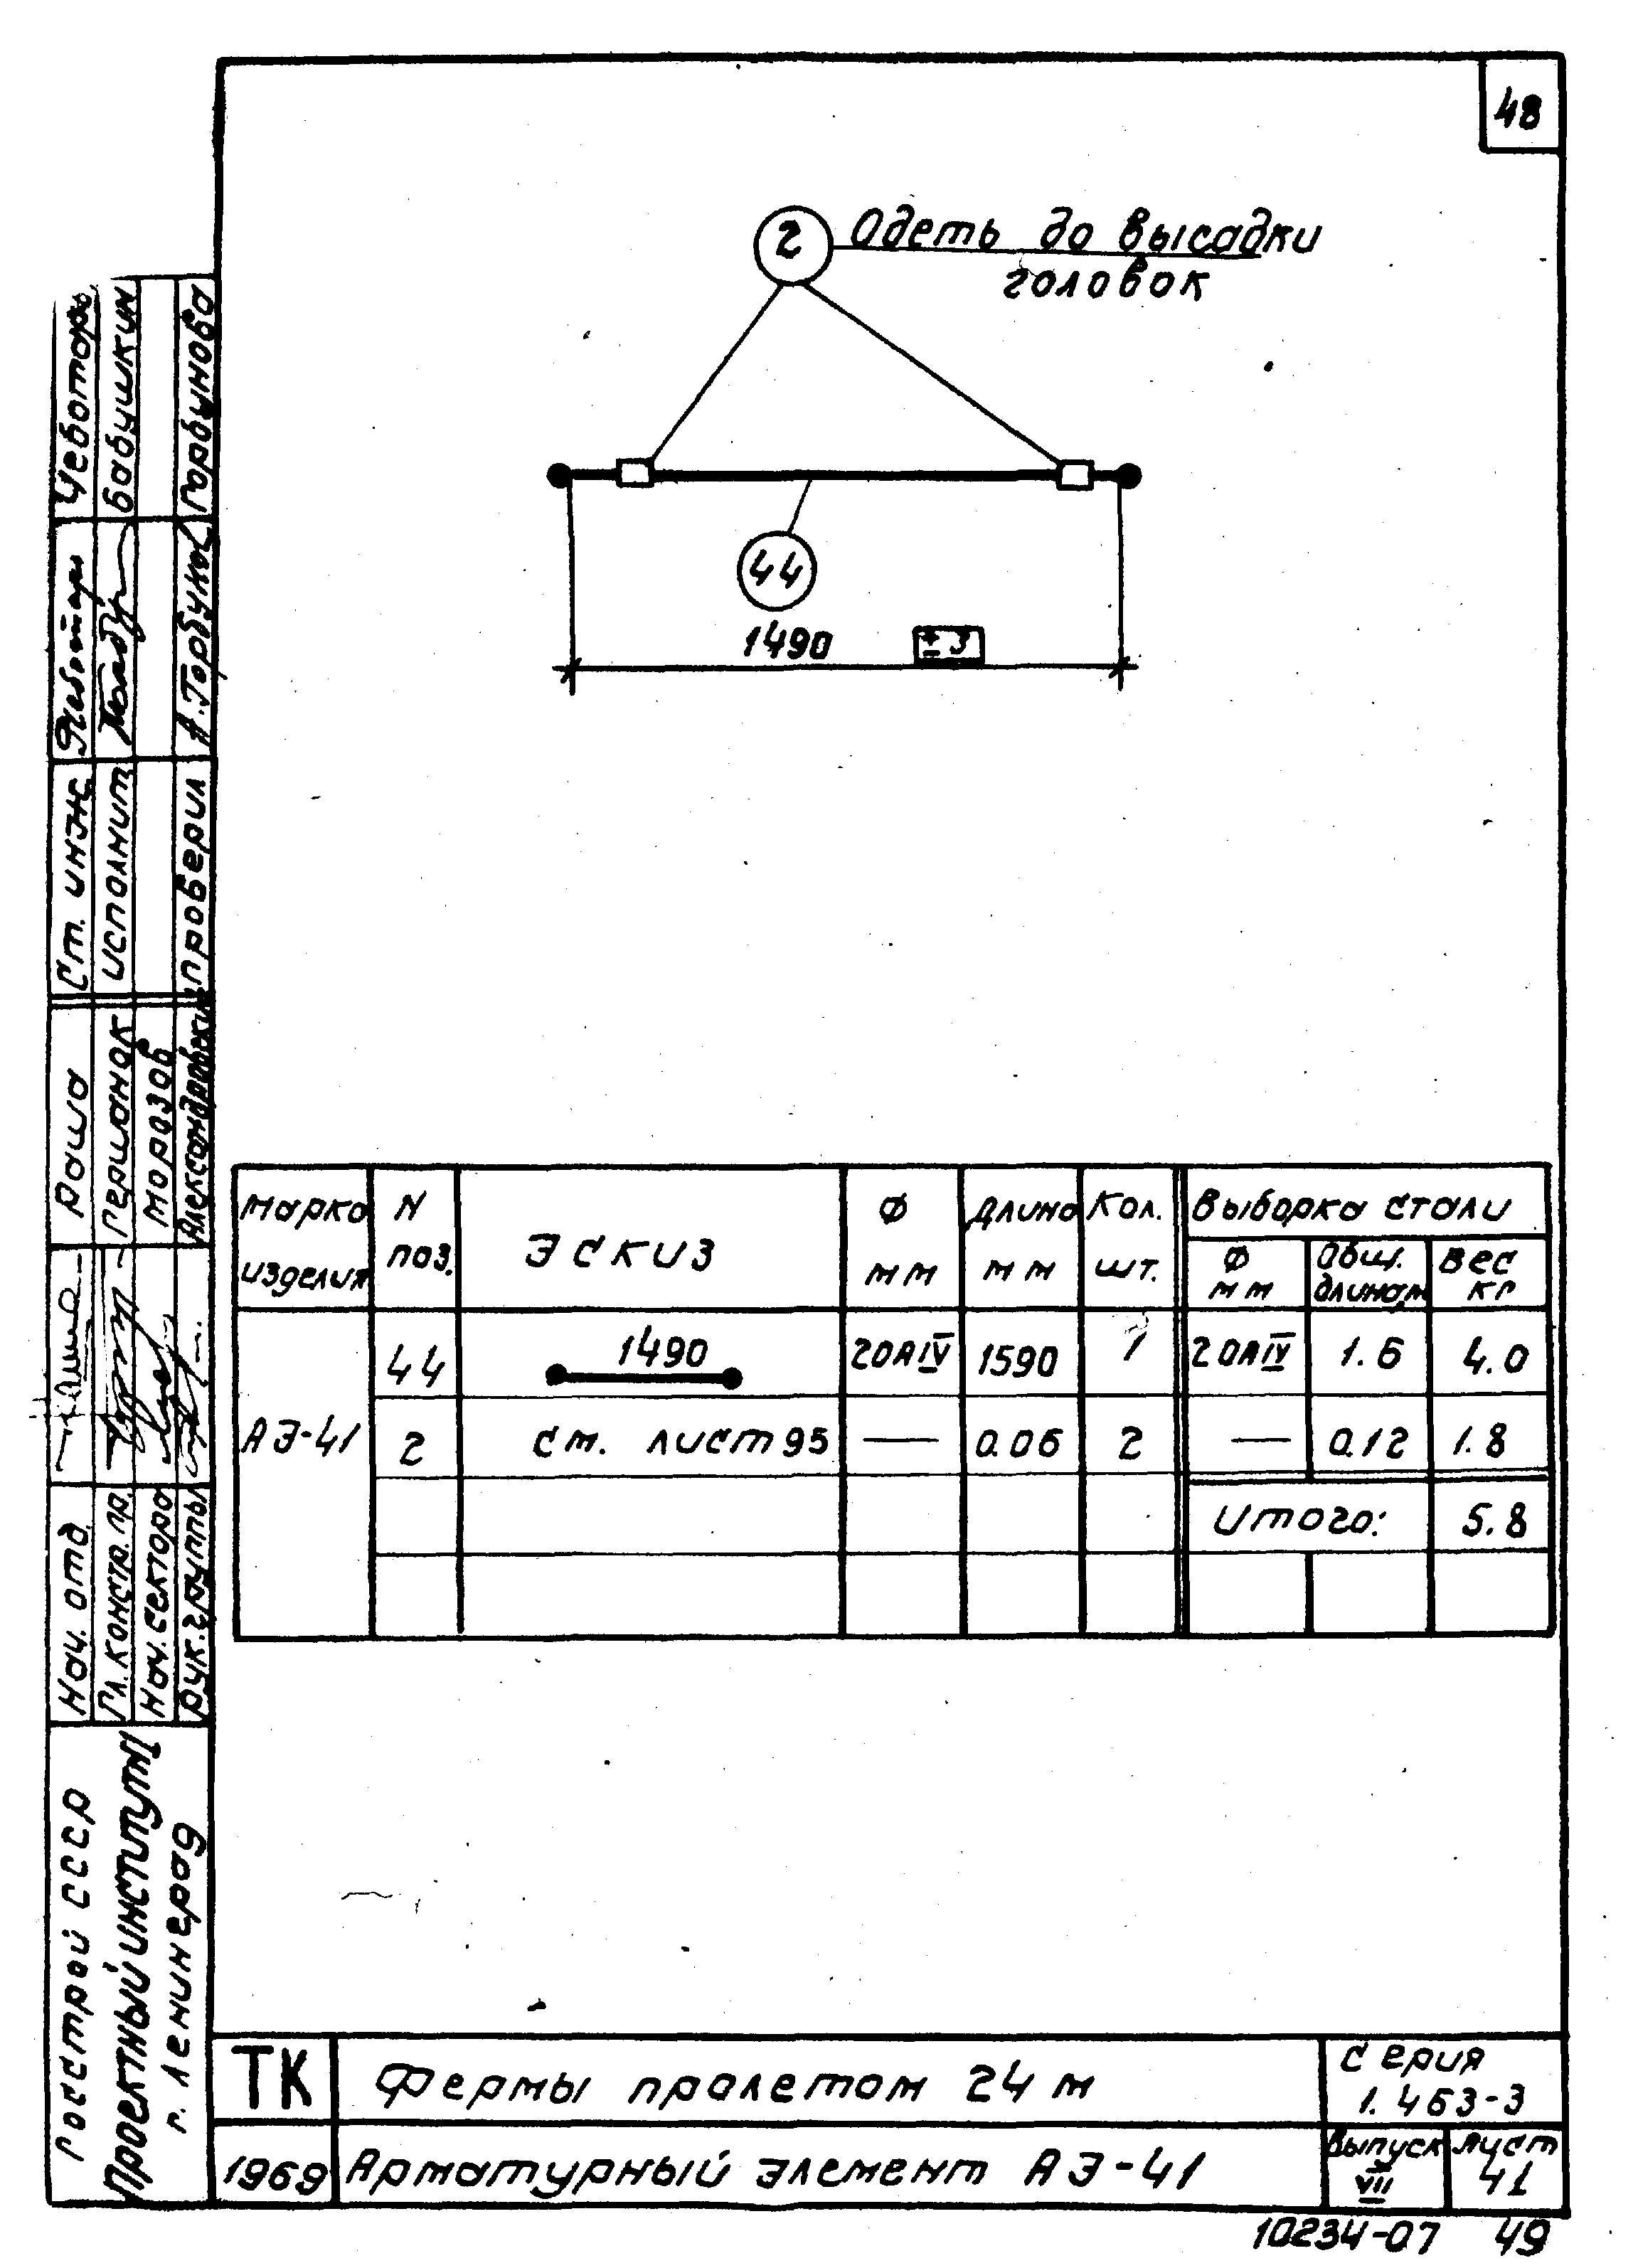 48
2 Одеть до высадки
головок
44
1490 ±3
Марка изделия
N поз.
Эскиз
Ф мм
Длина мм
Кол. шт.
Выборка стали
Ф мм
Общ. длина м
Вес кг
АЭ-41
44 1490 20АIV 1590 1 20АIV 1.6 4.0
2 см. лист 95 — 0.06 2 — 0.12 1.8
Итого: 5.8
Ст. инж. Чеботарь
исполнит Бабушкин
проверил А. Горбунов Горбунова
Нач. отд. Раша
Гл. констр. пр. Гершанок
Нач. сектора Морозов
Рук. группы
Госстрой СССР
Проектный институт I
г. Ленинград
ТК Фермы пролетом 24 м
Серия
1.463-3
1969 Арматурный элемент АЭ-41
Выпуск VII
Лист 41
10234-07 49